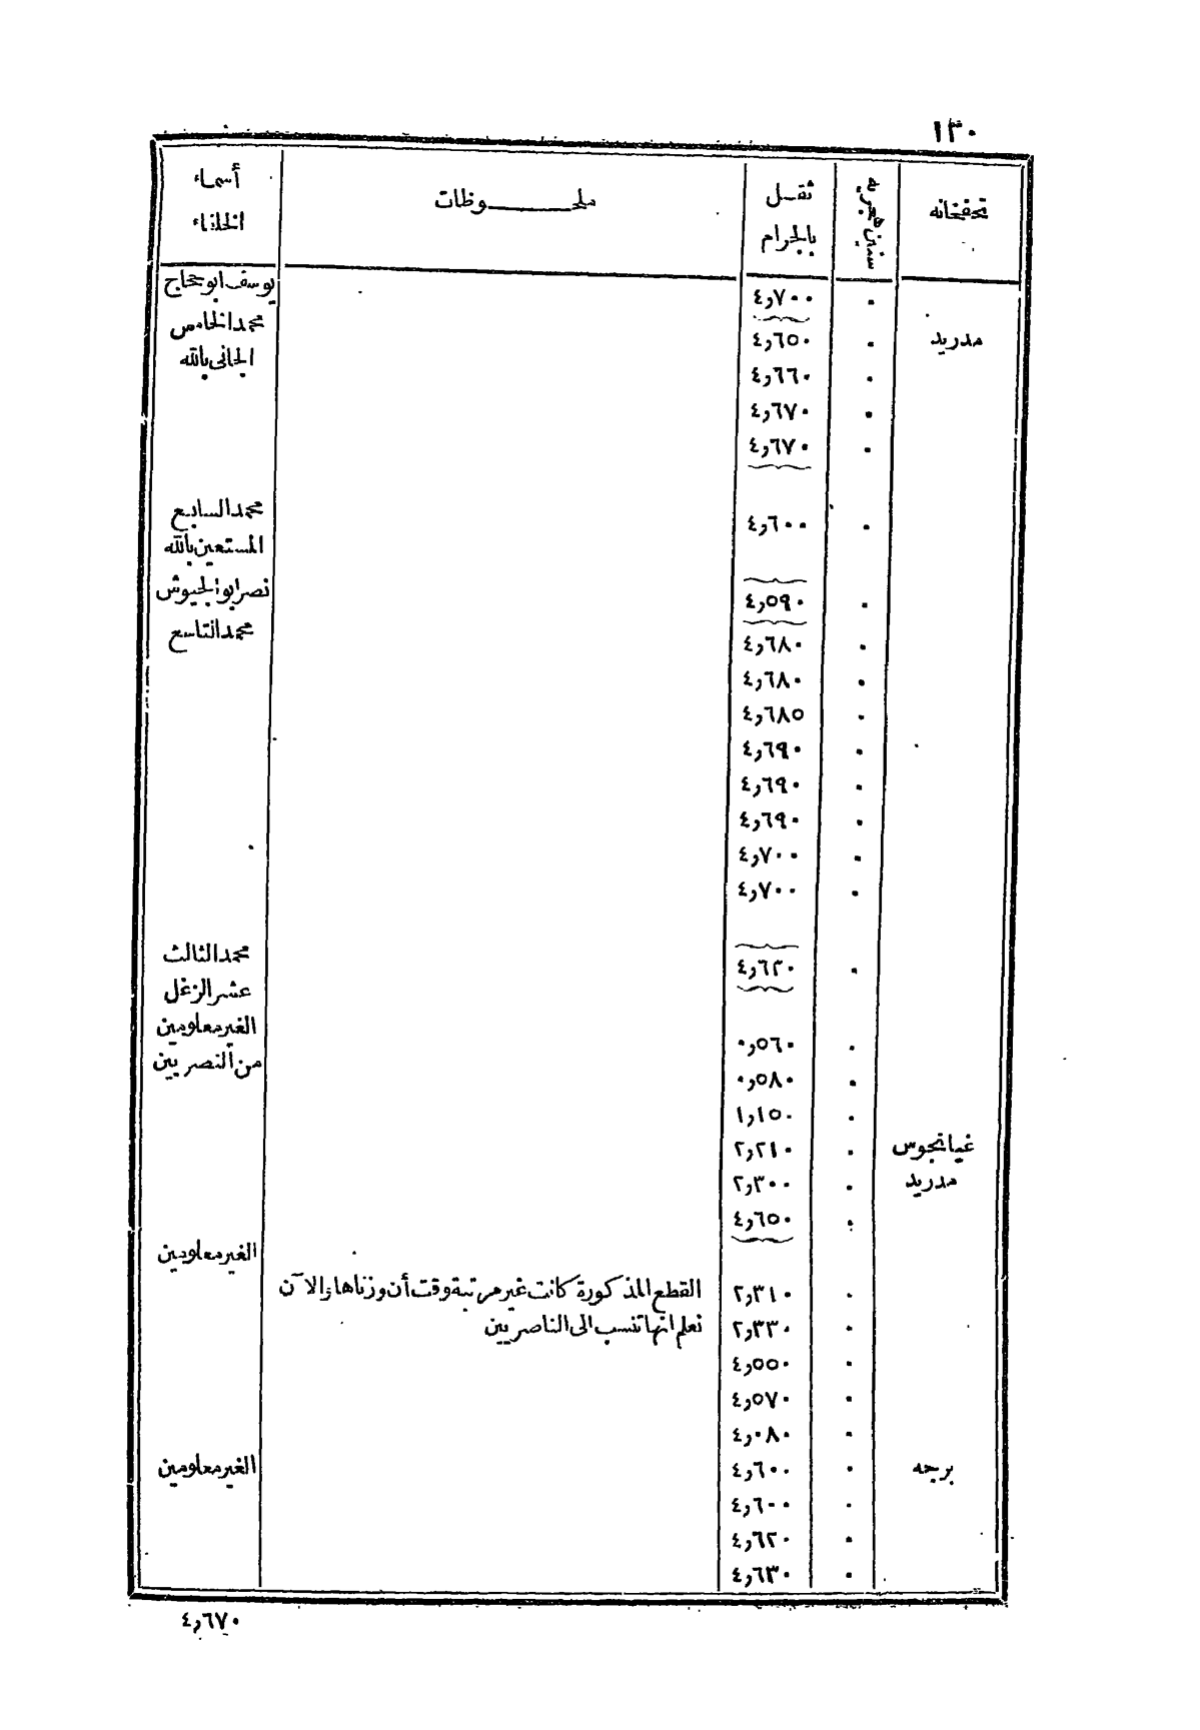 ١٣٠
تحفخانه | سنين هجريه | ثقل بالجرام | ملحـــوظات | أسماء الخلفاء
٠ | ٤٫٧٠٠ | يوسف ابو حجاج
مدريد | ٠ | ٤٫٦٥٠ | محمد الخامس
٠ | ٤٫٦٦٠ | الجانى بالله
٠ | ٤٫٦٧٠
٠ | ٤٫٦٧٠
٠ | ٤٫٦٠٠ | محمد السابع
المستعين بالله
٠ | ٤٫٥٩٠ | نصر ابو الجيوش
٠ | ٤٫٦٨٠ | محمد التاسع
٠ | ٤٫٦٨٠
٠ | ٤٫٦٨٥
٠ | ٤٫٦٩٠
٠ | ٤٫٦٩٠
٠ | ٤٫٦٩٠
٠ | ٤٫٧٠٠
٠ | ٤٫٧٠٠
٠ | ٤٫٦٢٠ | محمد الثالث
عشر الزغل
الغير معلومين
٠ | ٠٫٥٦٠ | من النصريين
٠ | ٠٫٥٨٠
٠ | ١٫١٥٠
غيانجوس | ٠ | ٢٫٢١٠
مدريد | ٠ | ٢٫٣٠٠
٠ | ٤٫٦٥٠
الغير معلومين
٠ | ٢٫٣١٠ | القطع المذكورة كانت غير مرتبة وقت أن وزناها والآن
٠ | ٢٫٣٣٠ | نعلم انها تنسب الى الناصريين
٠ | ٤٫٥٥٠
٠ | ٤٫٥٧٠
٠ | ٤٫٠٨٠
برجه | ٠ | ٤٫٦٠٠ | الغير معلومين
٠ | ٤٫٦٠٠
٠ | ٤٫٦٢٠
٠ | ٤٫٦٣٠
٤٫٦٧٠